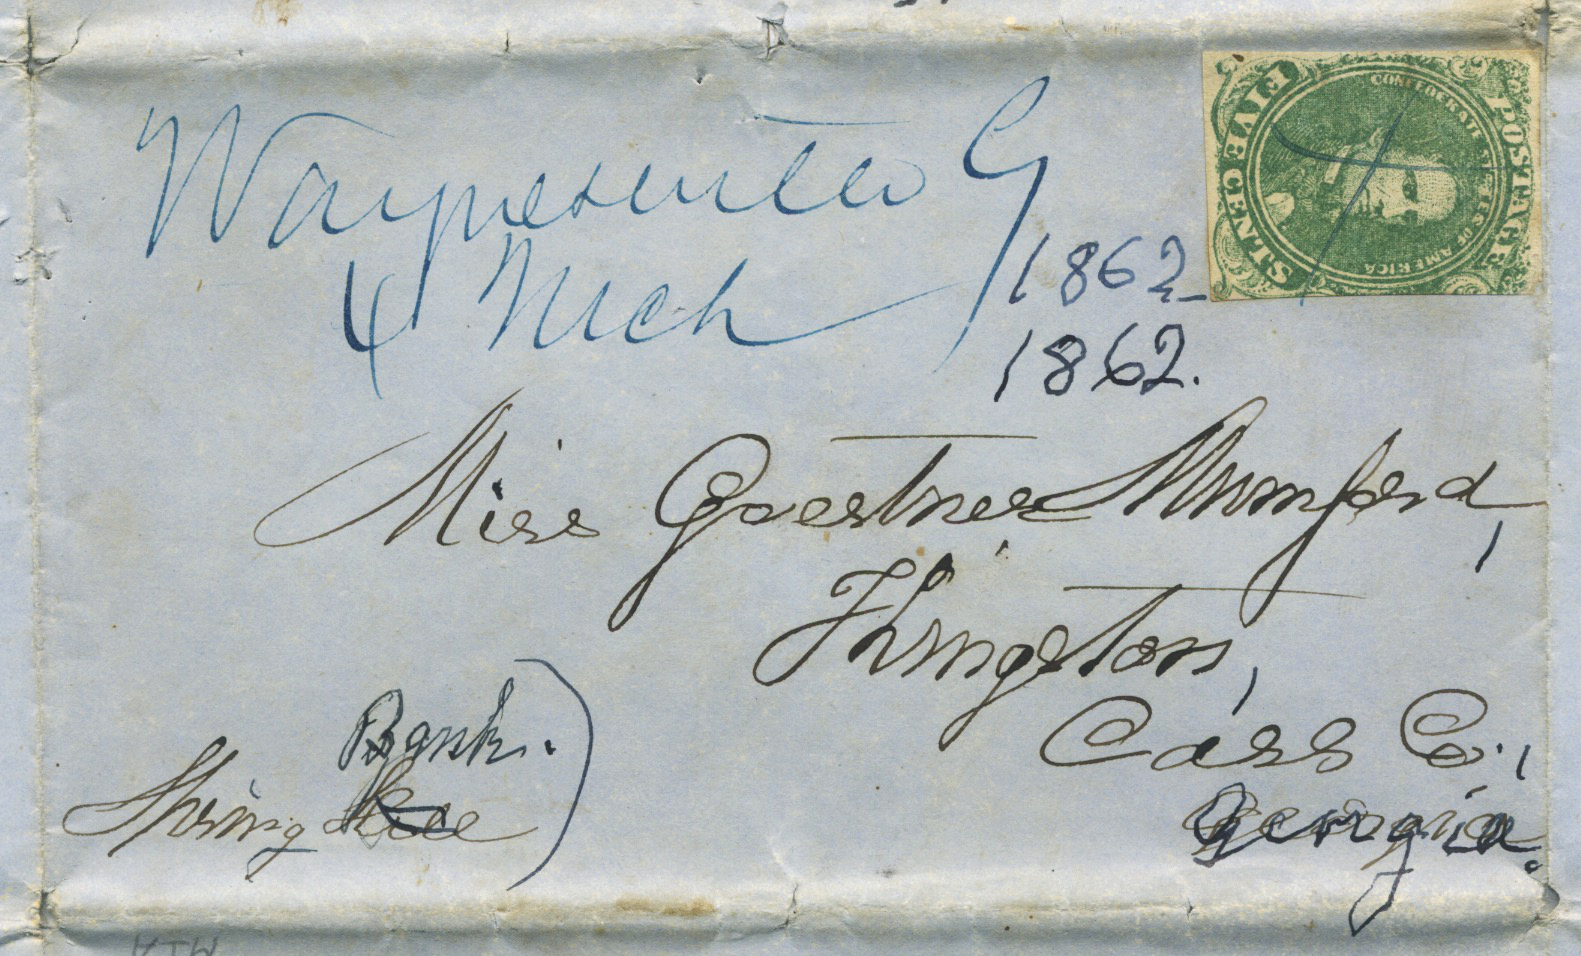 Waynesville Ga
4 Mch
1862
1862.
FIVE CENTS
CONFEDERATE STATES OF AMERICA
POSTAGE
Miss Goertner Mumford,
Kingston,
Cass Co.,
Georgia.
Bank.)
Spring